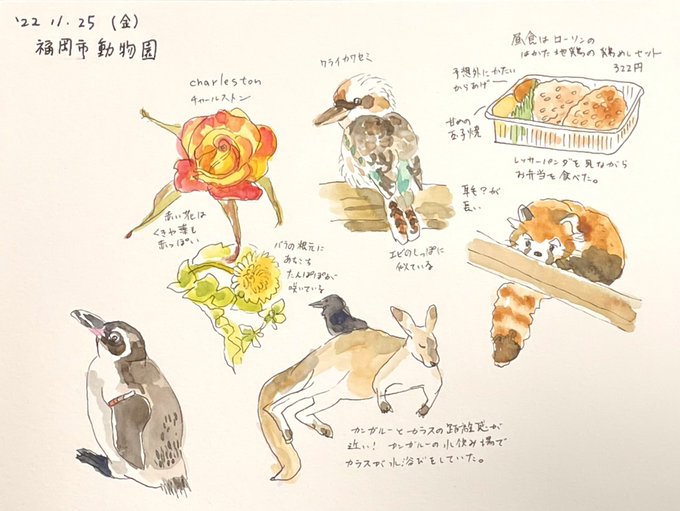 '22 11. 25 (金)
福岡市動物園
charleston
チャールストン
赤い花は
くきや葉も
赤っぽい
バラの根元に
あちこち
たんぽぽが
咲いている
ワライカワセミ
エビのしっぽに
似ている
昼食は ローソンの
はかた地鶏の鶏めしセット
322円
予想外にかたい
からあげ
甘めの
玉子焼
レッサーパンダを見ながら
お弁当を食べた。
耳毛?が
長い
カンガルーとカラスの距離感が
近い! カンガルーの水飲み場で
カラスが水浴びをしていた。